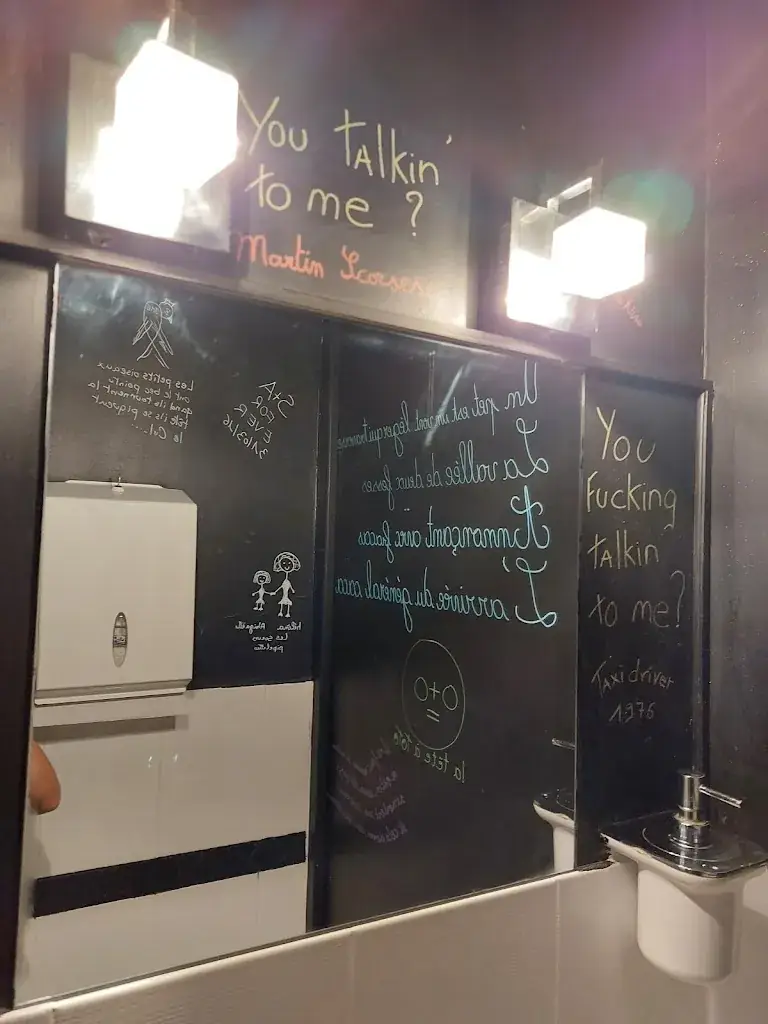 You talkin'
to me ?
Martin Scorsese
You
Fucking
talkin
to me?
Taxi driver
1976
Les petits oiseaux
ont le bec pointu
quand ils tournent la
tête ils se piquent
le Cul....
FOR
EVER
31/03/16
Un pet est un vent léger qui traverse
La vallée de deux fesses
Annonçant avec fracas
L'arrivée du général caca
Les sœurs
la tête à toto